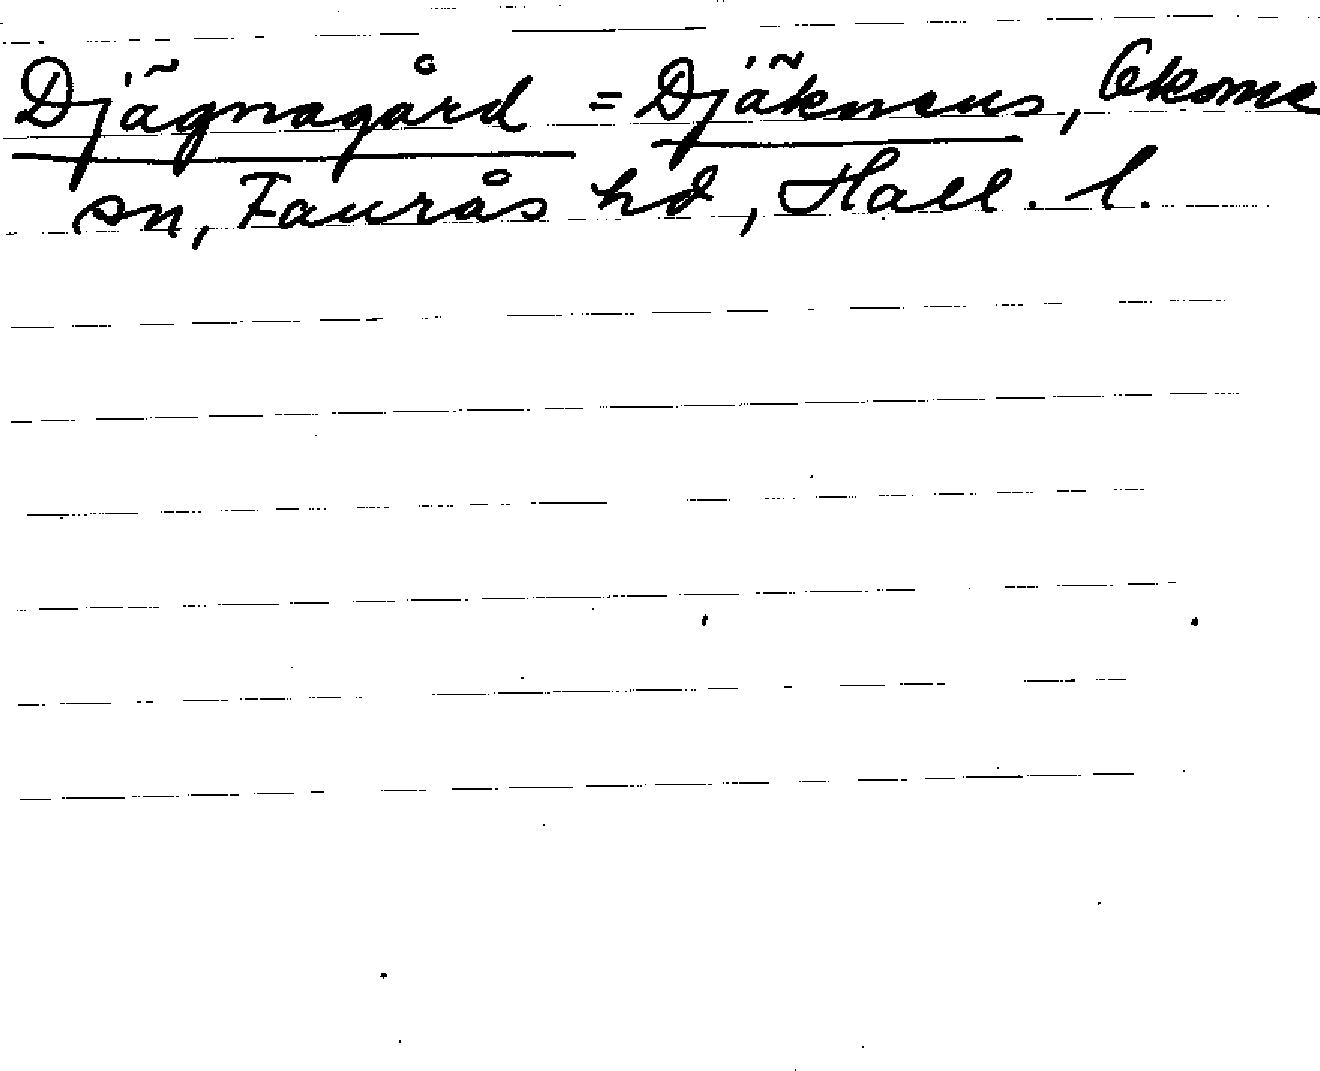 Djägnagård = Djäkneus, Okome
sn, Faurås hd, Hall. l.